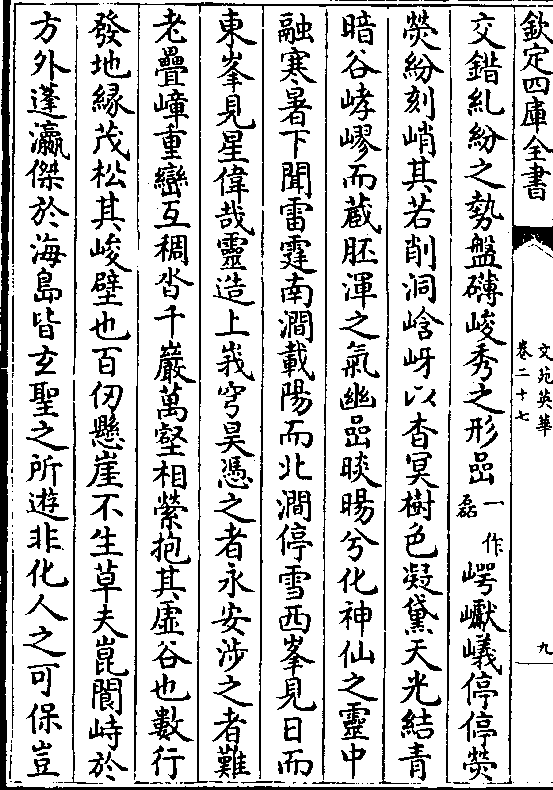 欽定四庫全書
文苑英華
卷二十七
九
交錯糺紛之勢盤礴峻秀之形嵒一作磊崿巘㠖停停熒
熒紛刻峭其若削洞㟏岈以杳冥樹色凝黛天光結青
暗谷崪嵺而蔵胚渾之氣幽嵒晱暘兮化神仙之靈中
融寒暑下聞雷霆南澗載陽而北澗停雪西峯見日而
東峯見星偉哉靈造上峩穹昊憑之者永安涉之者難
老疊嶂重巒互稠沓千巖萬壑相縈抱其虛谷也數行
發地緣茂松其峻壁也百仞懸崖不生草夫崑閬峙於
方外蓬瀛傑於海島皆玄聖之所遊非化人之可保豈